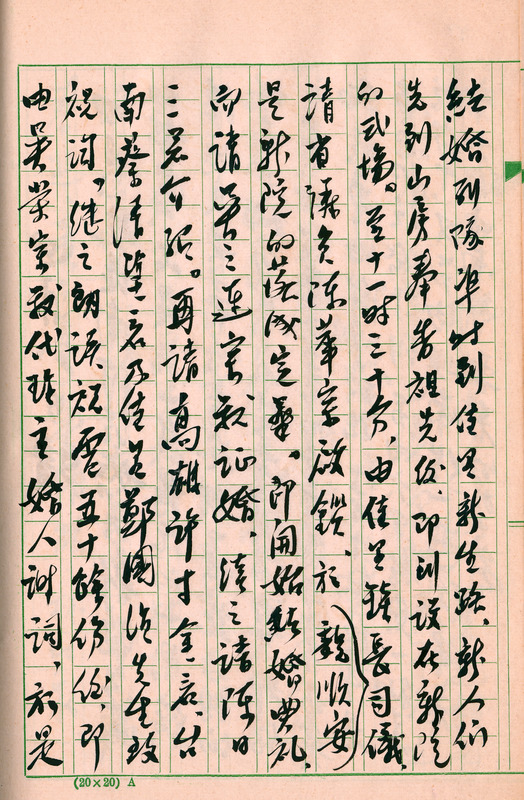 結婚列隊準時到佳里新生路、新人們
先到山房奉告祖先後、即到設在新院
的式場。至十一時三十分、由佳里鎮長司儀、
請省議員陳華宗啟鎖、於魏順安
是新院的落成完畢。即開始結婚典礼、
而請吳三連宗親証婚、續之請陳日
三君介紹。再請高雄許寸金君、台
南蔡清華君及佳里鄭國湞先生致
祝詞、継之朗讀祝電五十餘份後、即
由吳榮宗我代理主婚人謝詞、於是
(20×20) A